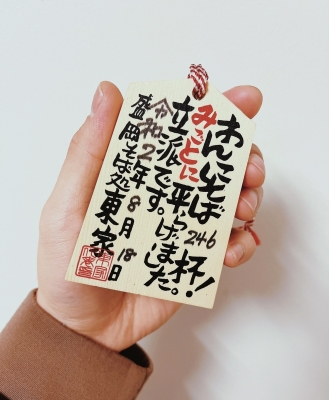 わんこそば246杯!
みごとに平らげました。
立派です。
令和2年8月18日
盛岡そば処東家